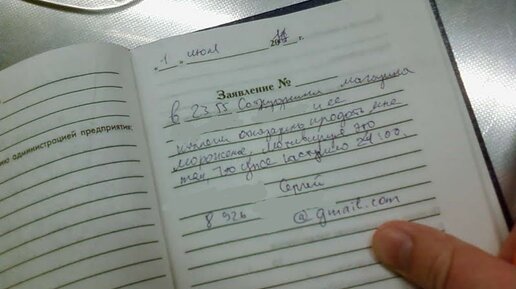 " 1 " июля 20 г.
Заявление №
ию администрацией предприятия:
В 23 55 Сотрудники магазина
и ее
коллеги отказались продать мне
мороженое, мотивируя это
тем, что уже наступило 24:00.
Сергей
8 926
@gmail.com